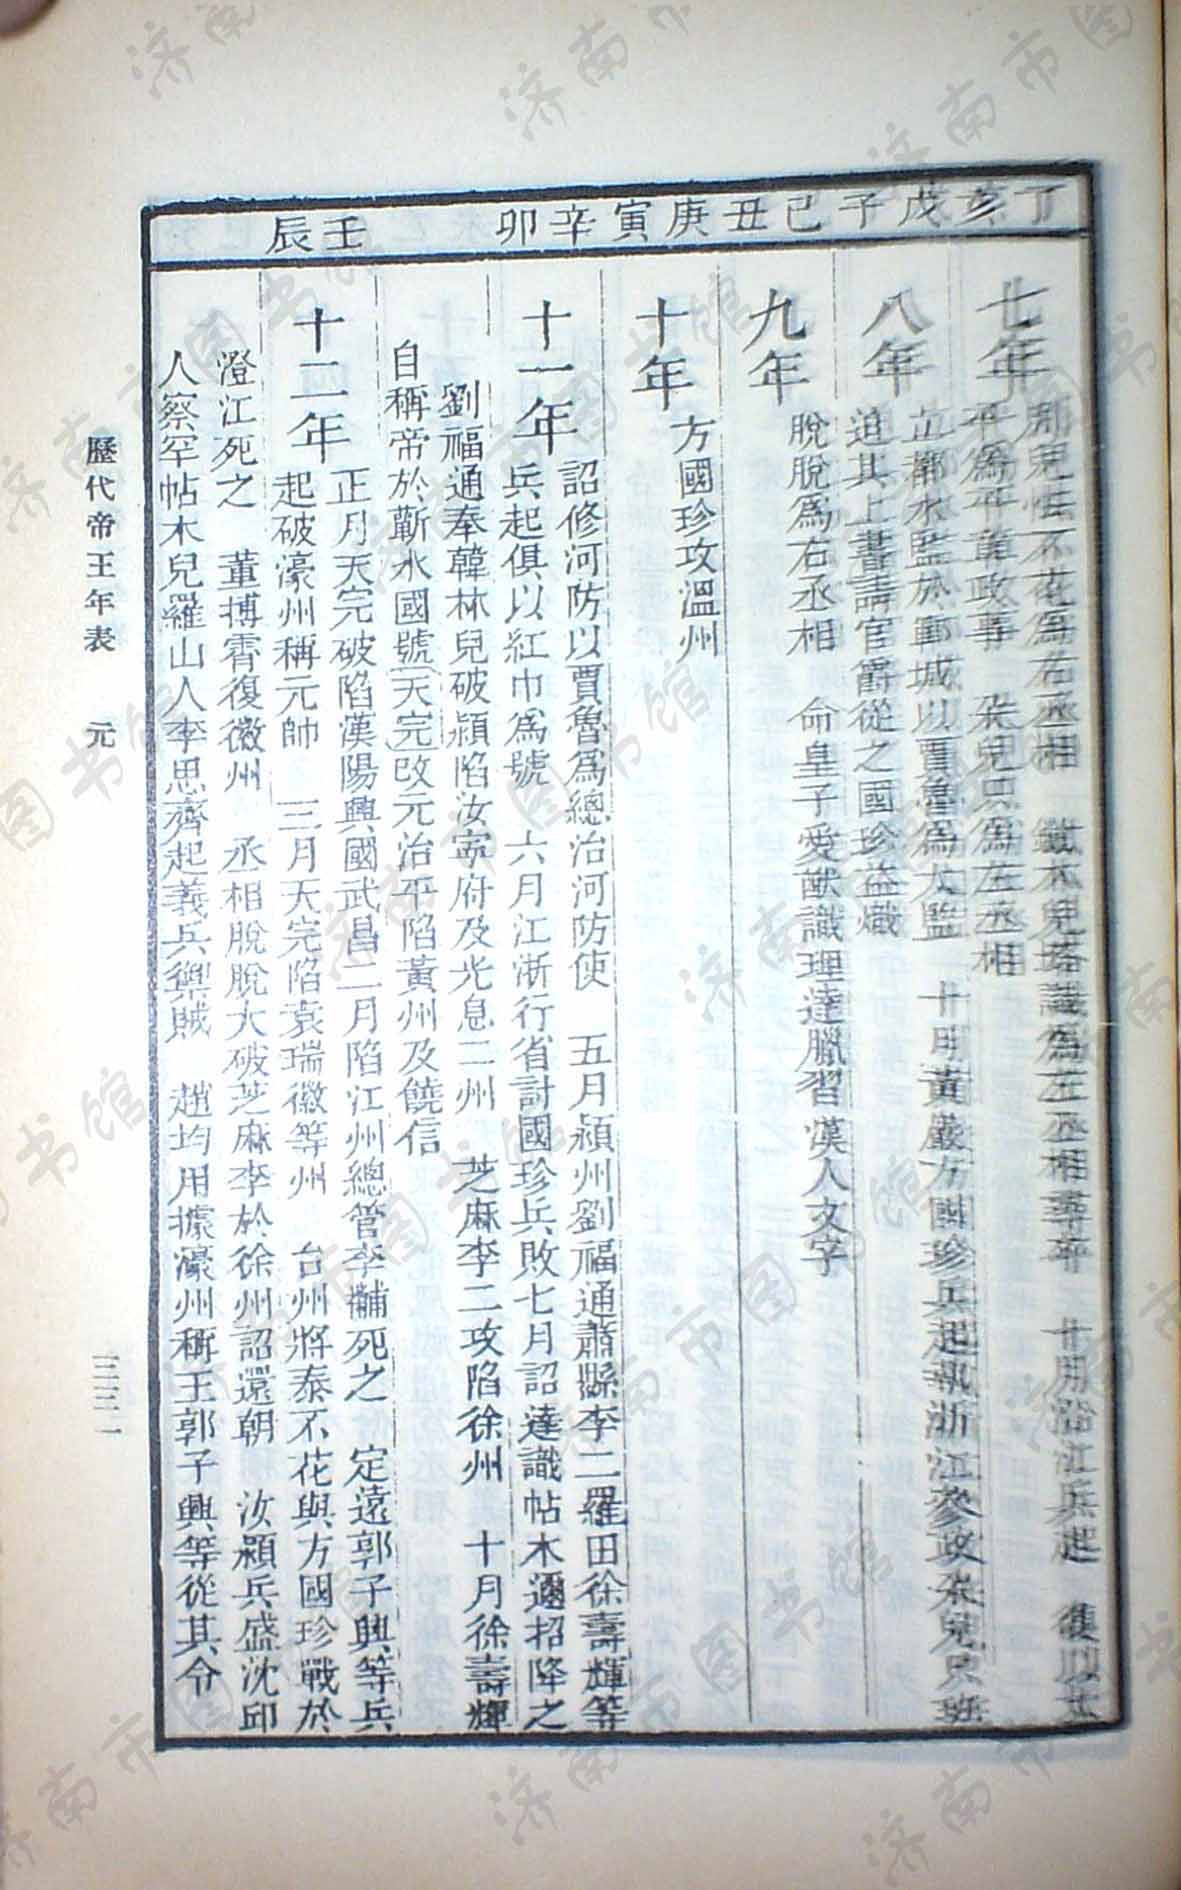 丁亥 戊子 己丑 庚寅 辛卯 壬辰
七年
那兒怯不花爲右丞相 鐵木兒塔識爲左丞相尋卒 十月沿江兵起 復以太
平爲平章政事 朵兒只爲左丞相
八年
立都水監於鄆城以賈魯爲太監 十月黃巖方國珍兵起執浙江參政朵兒只班
迫其上書請官爵從之國珍益熾
九年
脫脫爲右丞相 命皇子愛猷識理達臘習漢人文字
十年
方國珍攻溫州
十一年
詔修河防以賈魯爲總治河防使 五月潁州劉福通蕭縣李二羅田徐壽輝等
兵起俱以紅巾爲號 六月江浙行省討國珍兵敗七月詔達識帖木邇招降之
劉福通奉韓林兒破潁陷汝寧府及光息二州 芝麻李二攻陷徐州 十月徐壽輝
自稱帝於蘄水國號天完改元治平陷黃州及饒信
十二年
正月天完破陷漢陽興國武昌二月陷江州總管李黼死之 定遠郭子興等兵
起破濠州稱元帥 三月天完陷袁瑞徽等州 台州將泰不花與方國珍戰於
澄江死之 董摶霄復徽州 丞相脫脫大破芝麻李於徐州詔還朝 汝潁兵盛沈邱
人察罕帖木兒羅山人李思齊起義兵禦賊 趙均用據濠州稱王郭子興等從其令
歷代帝王年表 元
三三一
济南市图书馆